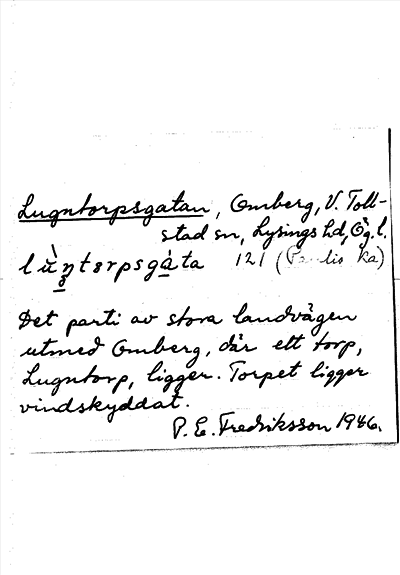 Lugntorpsgatan, Omberg, V. Toll-
stad sn, Lysings hd, Ög.l.
lùŋtorpsgàta 121 (
Det parti av stora landvägen
utmed Omberg, där ett torp,
Lugntorp, ligger. Torpet ligger
vindskyddat.
P. E. Fredriksson 1946.